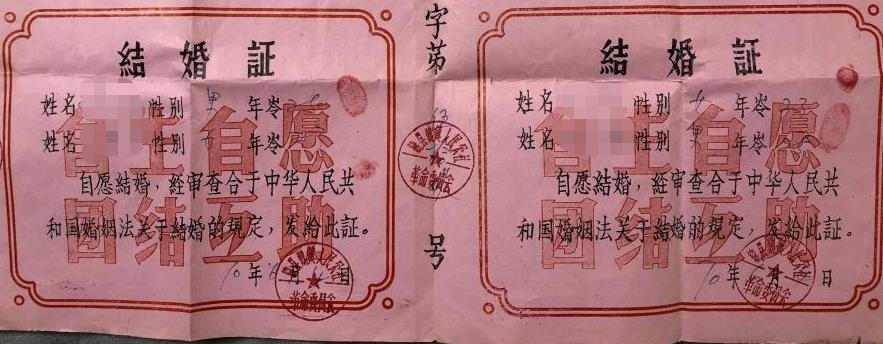 結婚証
姓名 性別 男 年岺
姓名 性別 女 年岺
自愿結婚，经审查合于中华人民共
和国婚姻法关于結婚的規定，发給此証。
年 月 日
自主自愿
团结互助
革命委员会
字第
号
人民公社
革命委员会
結婚証
姓名 性別 女 年岺 22
姓名 性別 男 年岺
自愿結婚，经审查合于中华人民共
和国婚姻法关于結婚的規定，发給此証。
年 月 日
自主自愿
团结互助
革命委员会